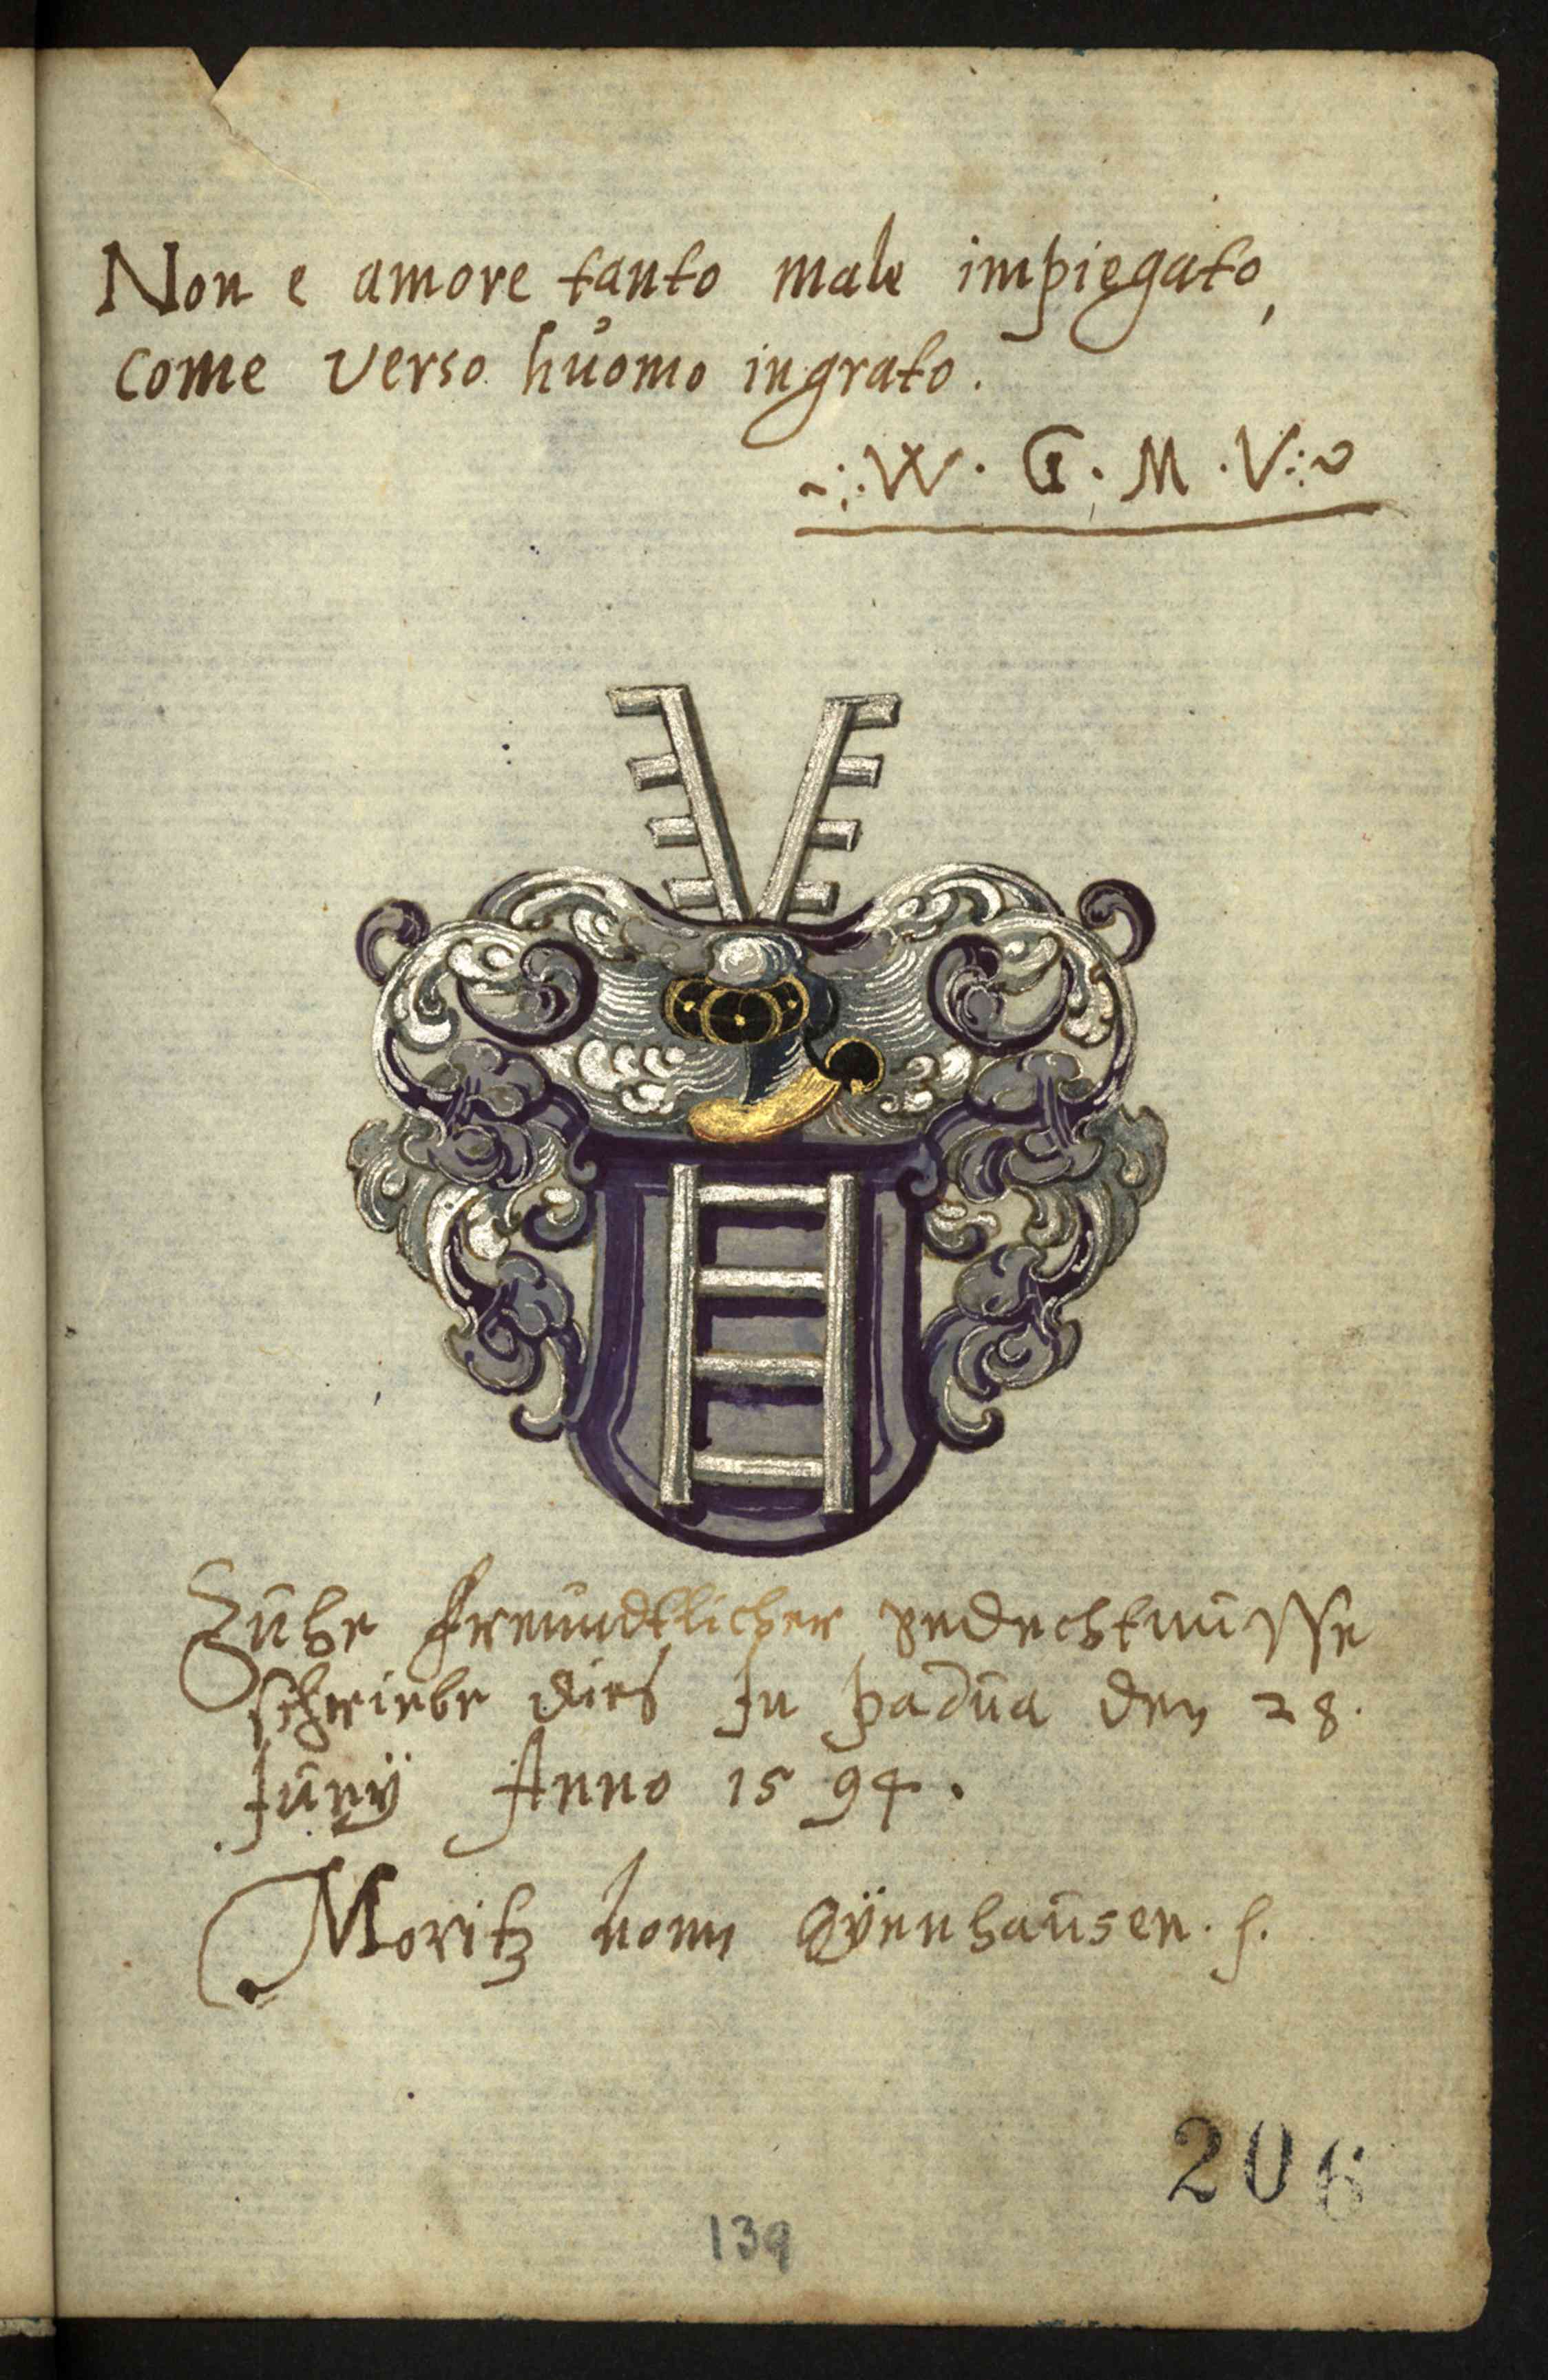 Non e amore tanto male impiegato,
come verso huomo ingrato.
W. G. M. V.
Zuhr freundtlicher gedechtnusse
schriebe dies In padua den 28.
Juny Anno 1594.
Moritz vonn Oÿenhausen.
206
139